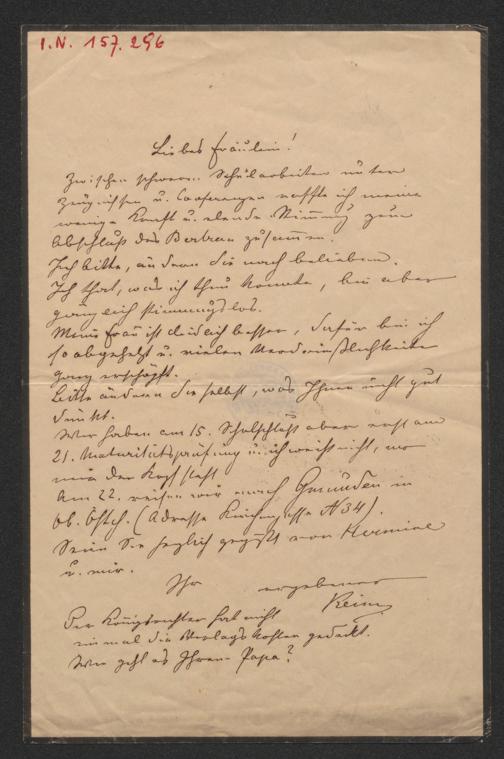 I.N. 157.296
Liebes Fräulein!
Zwischen schweren Schularbeiten unter
Zeugnissen u. Conferenzen raffte ich meine
wenige Kraft u. elende Stimmung zum
Abschluß des Bertran zusammen.
Ich bitte, ändern Sie nach belieben.
Ich that, was ich thun konnte, bin aber
gänzlich stimmungslos.
Meine Frau ist deutlich besser, dafür bin ich
so abgehetzt u. vielen Verdrießlichkeiten
ganz erschöpft.
Bitte ändern Sie selbst, was Ihnen nicht gut
dünkt.
Wir haben am 15. Schulschluß aber erst am
21. Maturitätsprüfung u. ich weiß nicht, wo
mir der Kopf steht.
Am 22. reisen wir nach Gmunden in
Ob. Östch. (Adresse Kirchengasse N 34).
Seien Sie herzlich gegrüßt von Hermine
u. mir.
Ihr ergebener
Keim
Der Königsrichter hat nicht
einmal die Verlagskosten gedeckt.
Wie geht es Ihrem Papa?